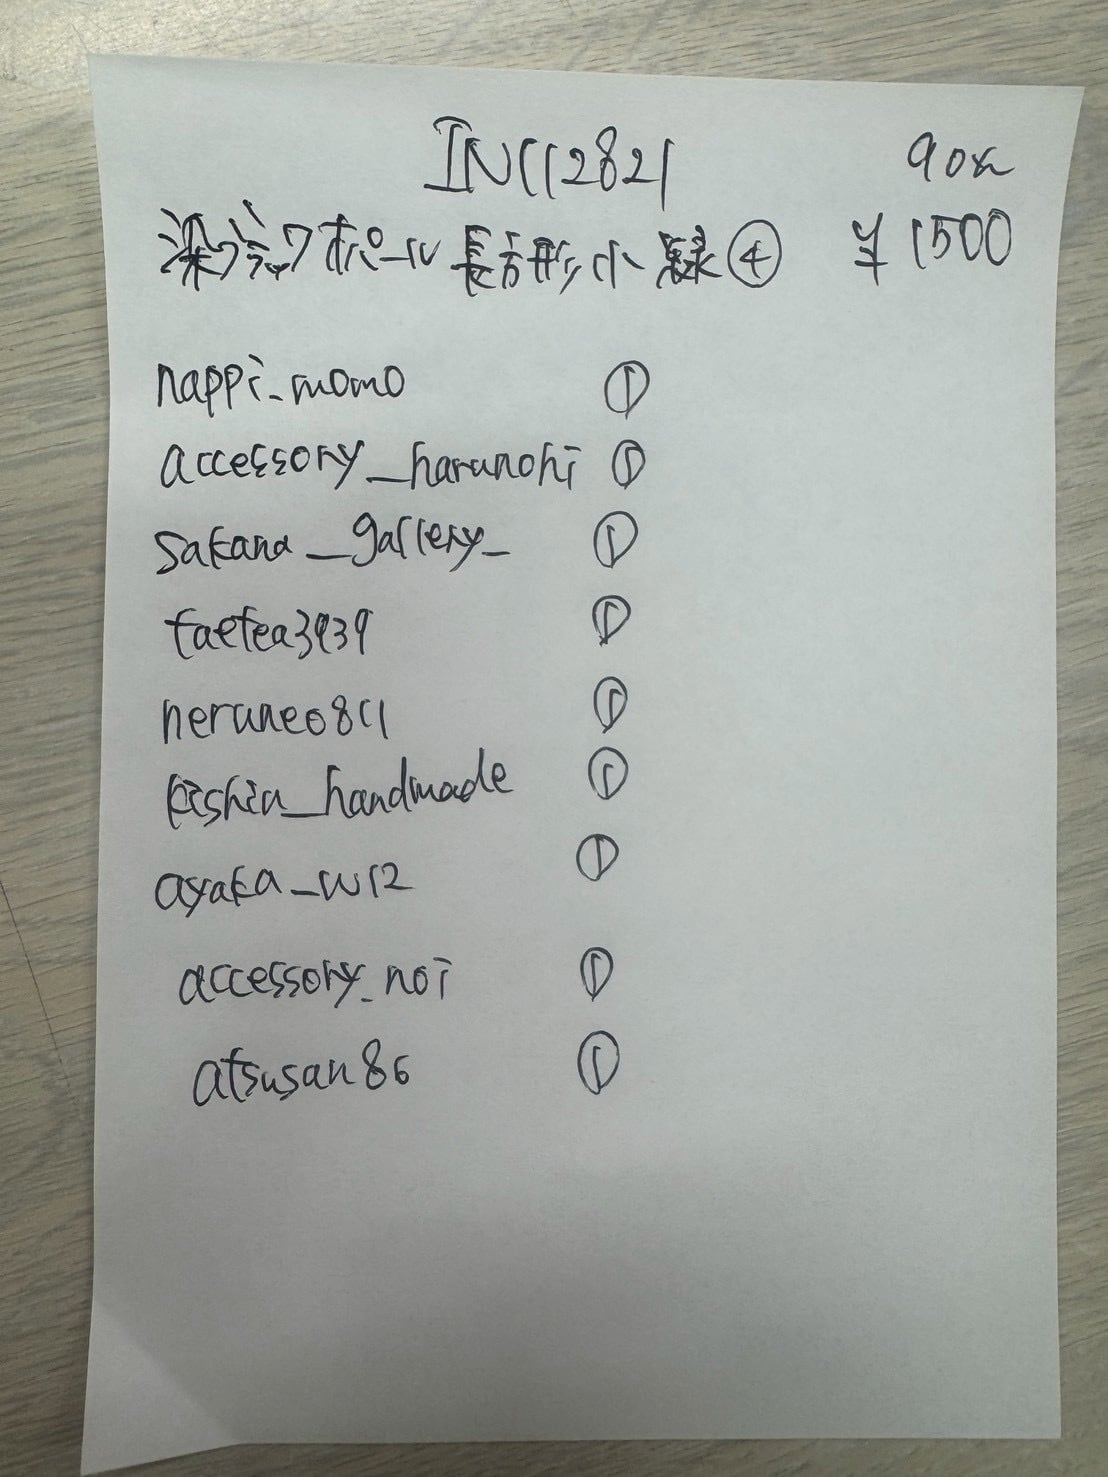 INC112821 90㎝
染淡水パール長方形小緑④ ¥1500
nappi_momo ①
accessory_harunohi ①
sakana_gallery_ ①
taetea3939 ①
neruneo811 ①
kishin_handmade ①
ayaka_w12 ①
accessory_noi ①
atsusan86 ①